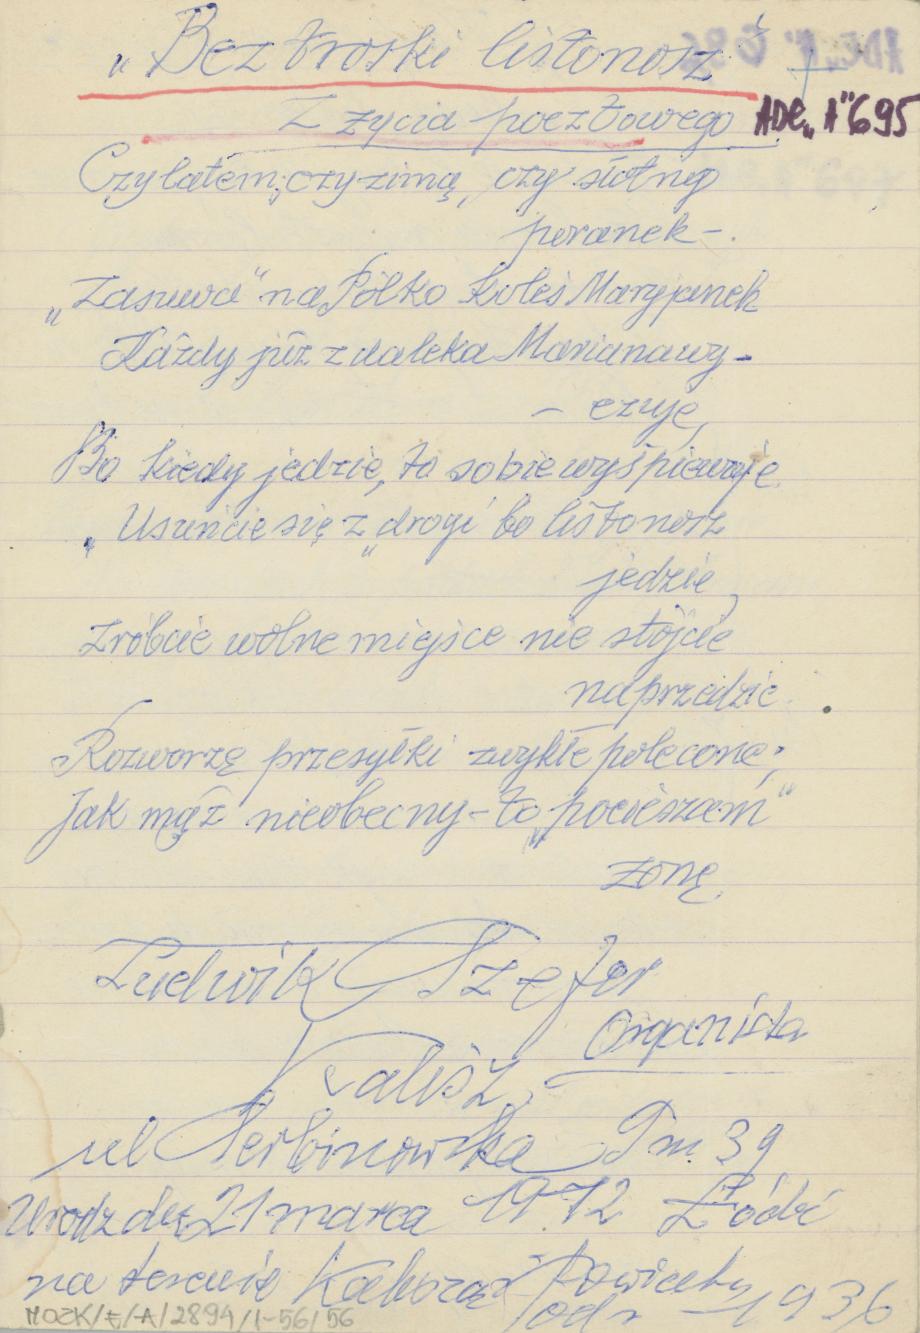 „Beztroski listonosz"
ADE „A" 695
Z życia pocztowego
Czy latem, czy zimą, czy słotny
poranek -.
„Zasuwa" na Pólko koleś Maryjanek
Każdy już z daleka Mariana wy-
- czuje,
Bo kiedy jedzie, to sobie wyśpiewuje
„Usuńcie się z „drogi" bo listonosz
jedzie,
Zróbcie wolne miejsce nie stójcie
na przedzie.
Rozworzę przesyłki zwykłe polecone;
Jak mąż nieobecny - to „pocieszam"
żonę.
Ludwik Szefer
Organista
Kalisz,
ul Serbinowska m. 39
Urodz. 21 marca 1912 Łódź
na terenie Powiatu
od r - 1936
MOZK/E/A/2894/1-56/56